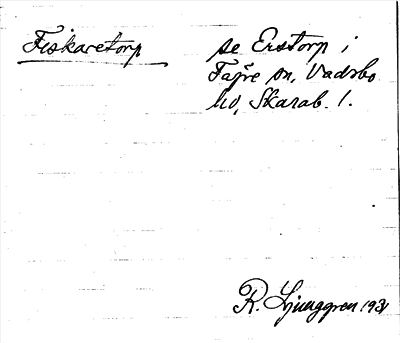 Fiskaretorp
se Erstorp i
Fägre sn, Vadsbo
hd, Skarab. l.
R. Ljunggren 193